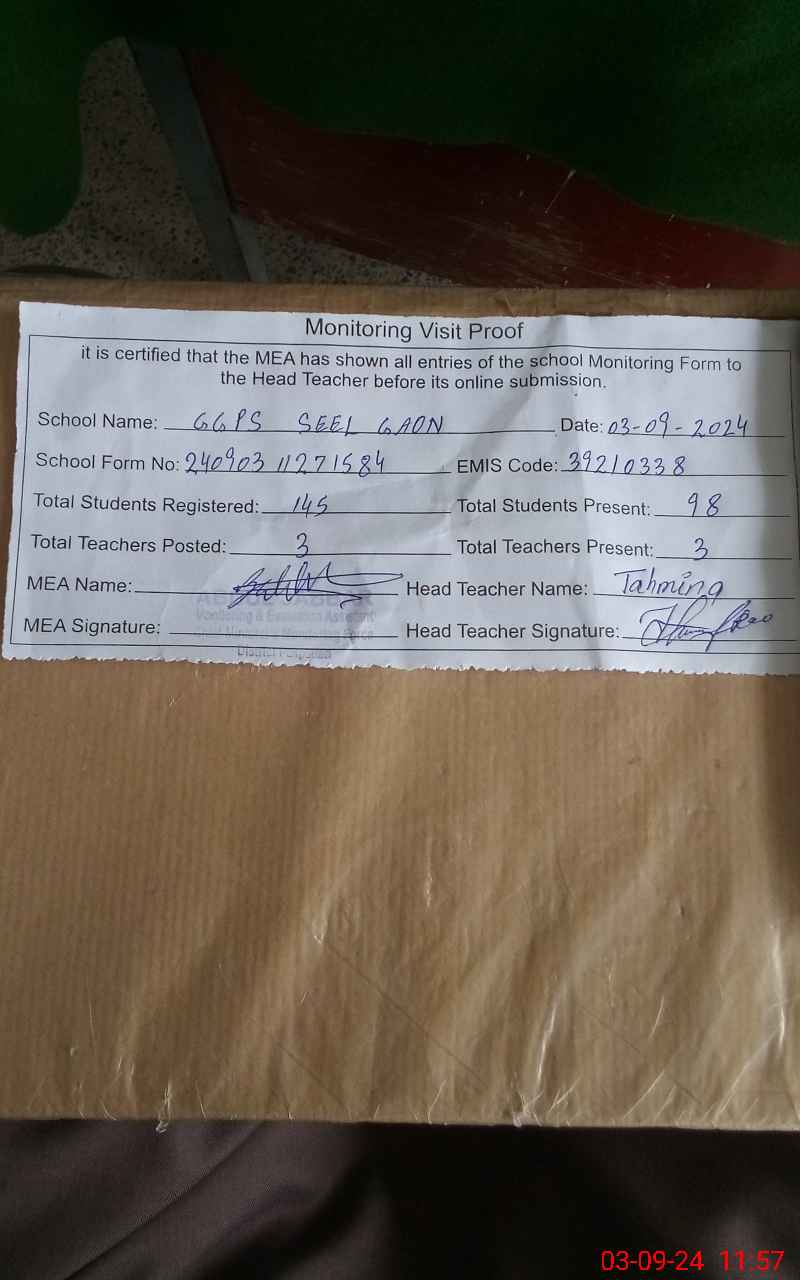 Monitoring Visit Proof
it is certified that the MEA has shown all entries of the school Monitoring Form to
the Head Teacher before its online submission.
School Name: GGPS SEEL GAON Date: 03-09-2024
School Form No: 240903 11271584 EMIS Code: 39210338
Total Students Registered: 145 Total Students Present: 98
Total Teachers Posted: 3 Total Teachers Present: 3
MEA Name: Head Teacher Name: Tahmina
Monitoring & Evaluation Assistant
MEA Signature: Head Teacher Signature:
Chief Minister's Monitoring Force
District
03-09-24 11:57